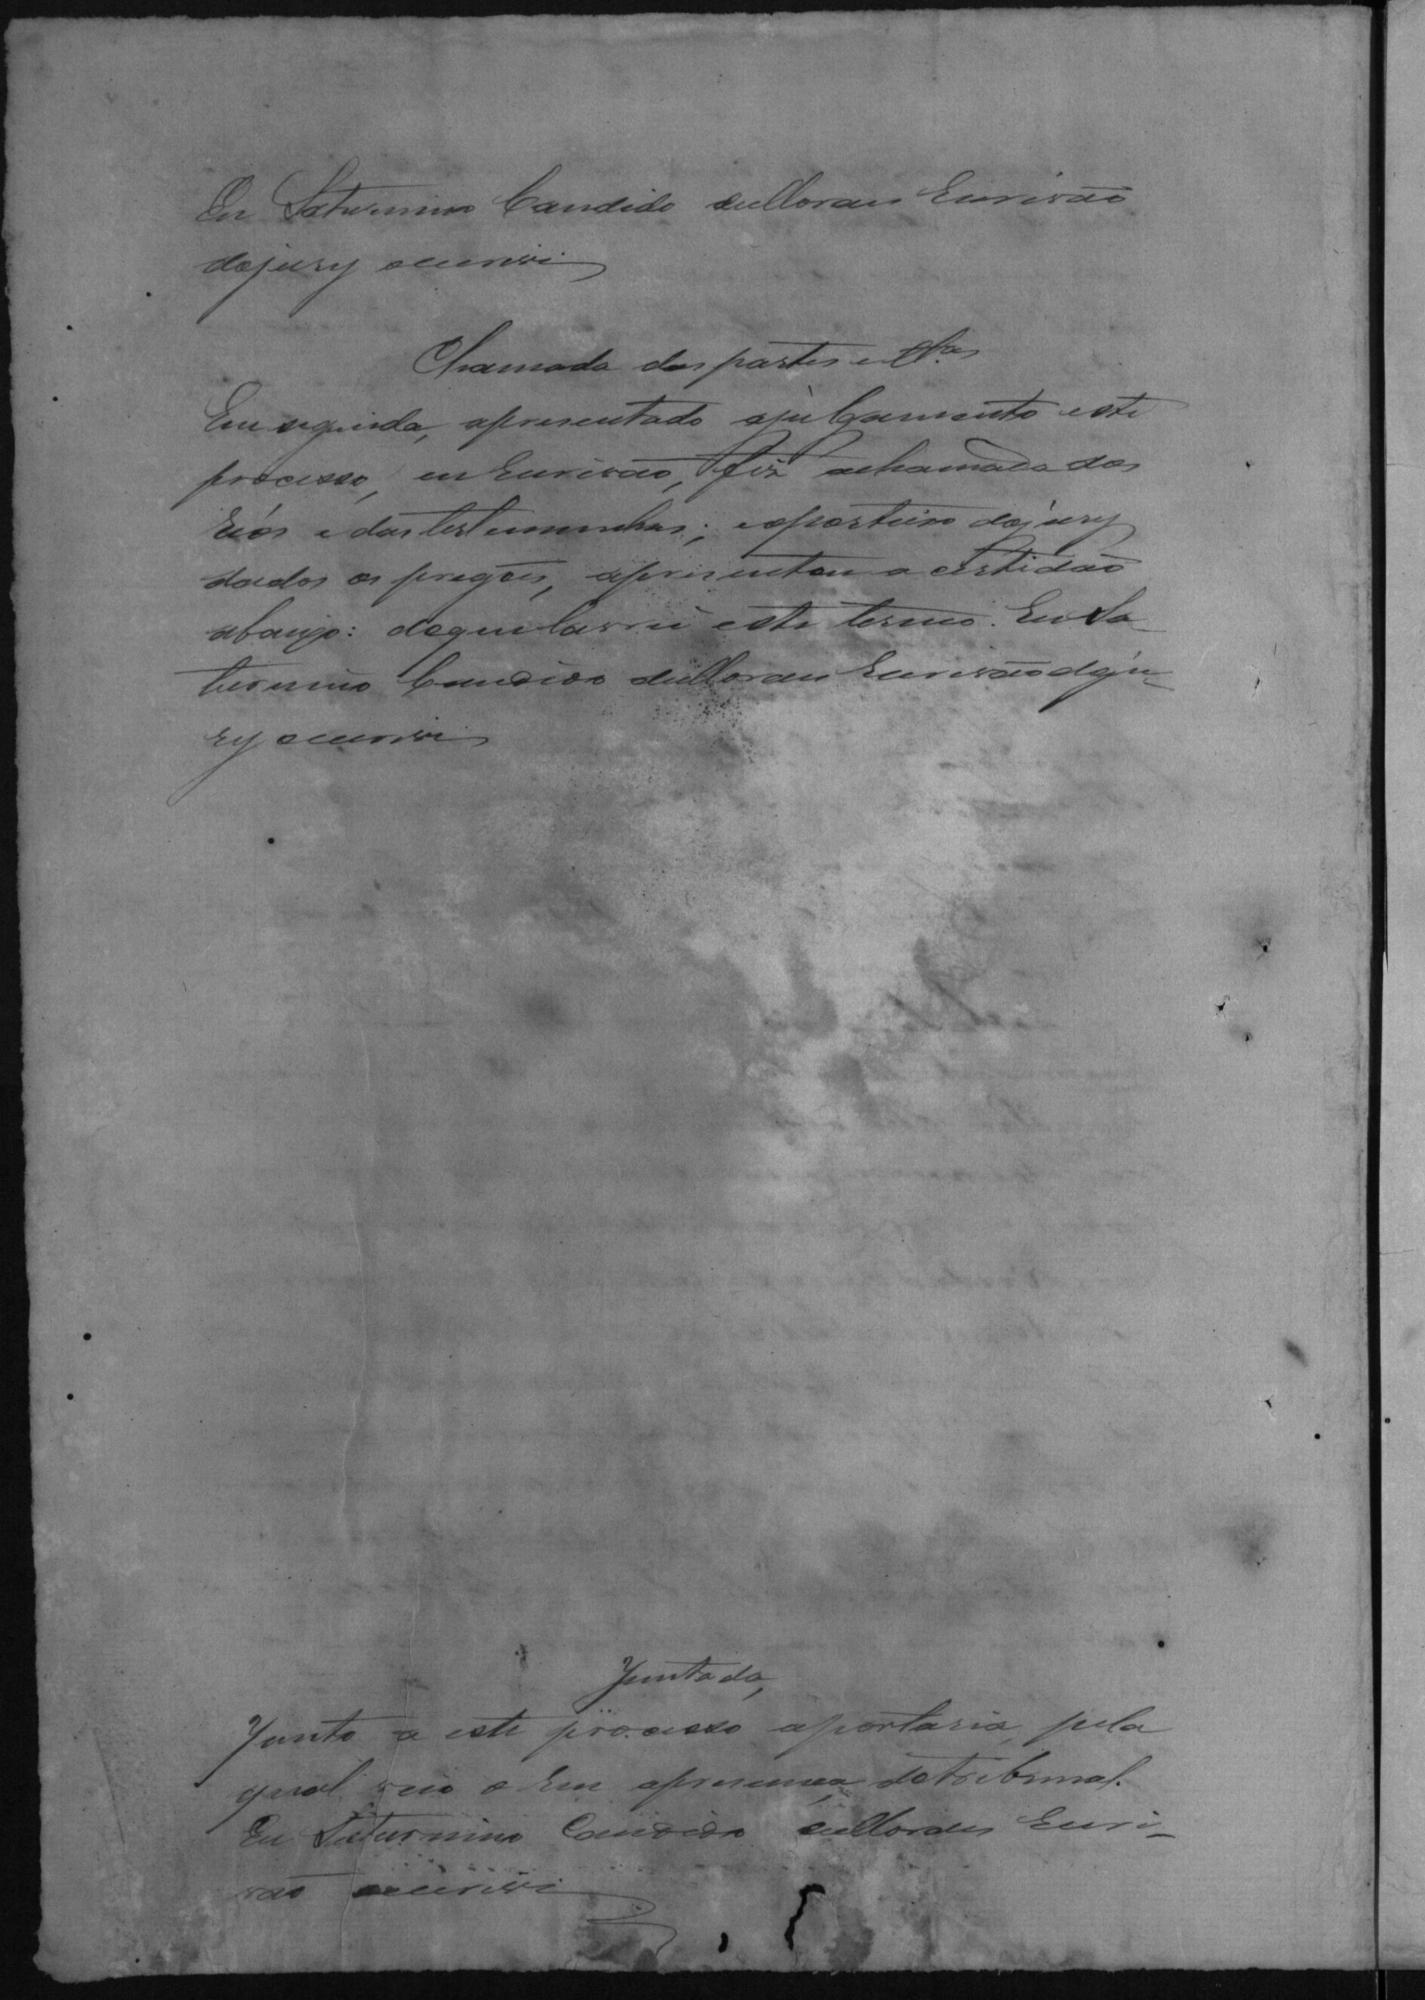 Eu Saturnino Candido de Moraes Escrivão
do jury o escrevi
Chamada das partes e t.as
Em seguida, apresentado a julgamento este
processo, eu Escrivão, fiz a chamada dos
réos e das testemunhas; e o porteiro do jury
dados os pregões, apresentou a certidão
abaixo: do que lavrei este termo. Eu Sa-
turnino Candido de Moraes Escrivão do ju-
ry o escrevi
Juntada,
Junto a este processo a portaria, pela
qual veio o réu a presença do tribunal.
Eu Saturnino Candido de Moraes Escri-
vão o escrevi